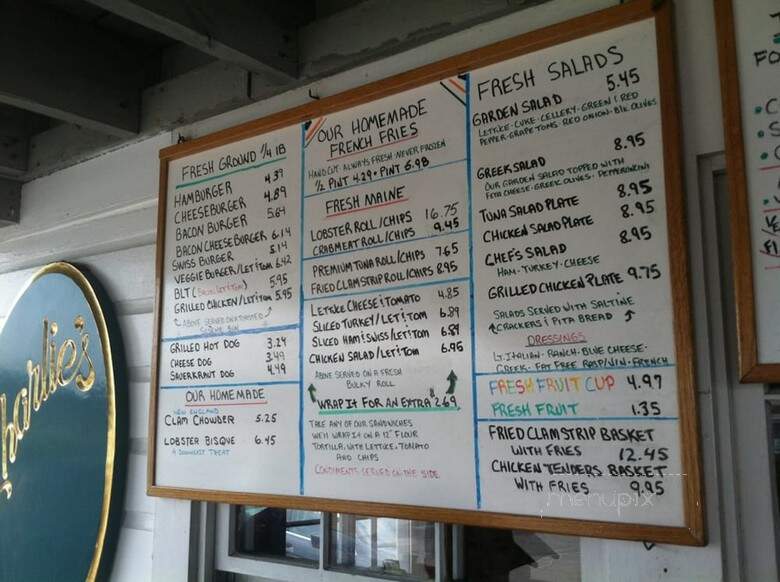 Charlie's
FRESH GROUND 1/4 lB
HAMBURGER 4.39
CHEESEBURGER 4.89
BACON BURGER 5.64
BACON CHEESE BURGER 6.14
SWISS BURGER 5.14
VEGGIE BURGER/LETITOM 6.42
BLT (BACON LETITOM) 5.95
GRILLED CHICKEN/LETITOM 5.95
ABOVE SERVED ON A TOASTED
BUN
GRILLED HOT DOG 3.24
CHEESE DOG 3.49
SAUERKRAUT DOG 4.49
OUR HOMEMADE
NEW ENGLAND
CLAM CHOWDER 5.25
LOBSTER BISQUE 6.45
A DOWNEAST TREAT
OUR HOMEMADE
FRENCH FRIES
HAND CUT ALWAYS FRESH-NEVER FROZEN
1/2 PINT 4.29 • PINT 6.98
FRESH MAINE
LOBSTER ROLL/CHIPS 16.75
CRABMEAT ROLL/CHIPS 9.45
PREMIUM TUNA ROLL/CHIPS 7.65
FRIED CLAM STRIP ROLL/CHIPS 8.95
LETTUCE CHEESE I TOMATO 4.85
SLICED TURKEY/LETITOM 6.89
SLICED HAM I SWISS/LETITOM 6.89
CHICKEN SALAD/LETITOM 6.95
ABOVE SERVED ON A FRESH
BULKY ROLL
WRAP IT FOR AN EXTRA $2.69
TAKE ANY OF OUR SANDWICHES
WE'LL WRAP IT ON A 12" FLOUR
TORTILLA, WITH LETTUCE, TOMATO
AND CHIPS
CONDIMENTS SERVED ON THE SIDE
FRESH SALADS
GARDEN SALAD 5.45
LETTUCE-CUKE-CELLERY-GREEN I RED
PEPPER-GRAPE TOMS. RED ONION-BLK OLIVES
GREEK SALAD 8.95
OUR GARDEN SALAD TOPPED WITH
FETA CHEESE-GREEK OLIVES-PEPPERONCINI
TUNA SALAD PLATE 8.95
CHICKEN SALAD PLATE 8.95
CHEF'S SALAD 8.95
HAM-TURKEY-CHEESE
GRILLED CHICKEN PLATE 9.75
SALADS SERVED WITH SALTINE
CRACKERS I PITA BREAD
DRESSINGS
LT. ITALIAN-RANCH-BLUE CHEESE-
GREEK-FAT FREE RASP/VIN-FRENCH
FRESH FRUIT CUP 4.97
FRESH FRUIT 1.35
FRIED CLAM STRIP BASKET
WITH FRIES 12.45
CHICKEN TENDERS BASKET
WITH FRIES 9.95
menupix
FO